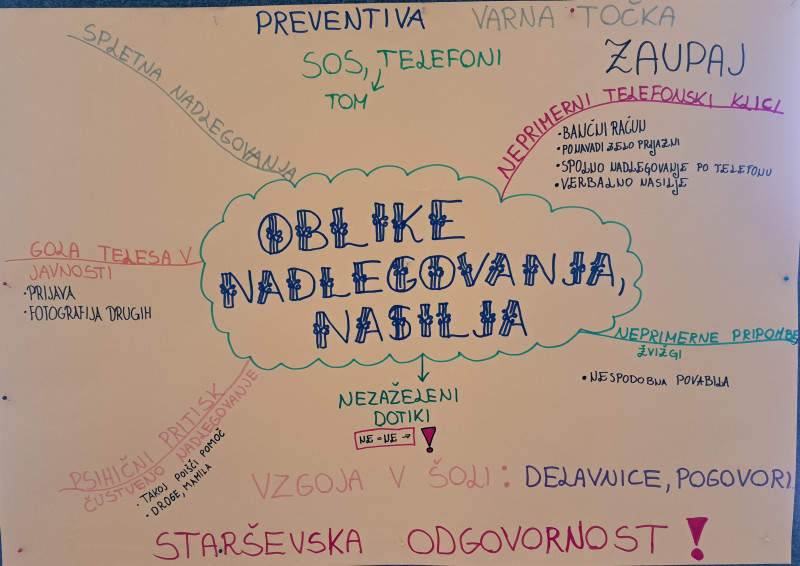 PREVENTIVA VARNA TOČKA
SOS, TELEFONI
TOM
ZAUPAJ
SPLETNA NADLEGOVANJA
NEPRIMERNI TELEFONSKI KLICI
• BANČNI RAČUN
• PONAVADI ZELO PRIJAZNI
• SPOLNO NADLEGOVANJE PO TELEFONU
• VERBALNO NASILJE
OBLIKE
NADLEGOVANJA,
NASILJA
GOLA TELESA V
JAVNOSTI
• PRIJAVA
• FOTOGRAFIJA DRUGIH
NEPRIMERNE PRIPOMBE
ŽVIŽGI
• NESPODOBNA POVABILA
NEZAŽELENI
DOTIKI
NE = NE → !
PSIHIČNI PRITISK
ČUSTVENO NADLEGOVANJE
• TAKOJ POIŠČI POMOČ
• DROGE, MAMILA
VZGOJA V ŠOLI: DELAVNICE, POGOVORI
STARŠEVSKA ODGOVORNOST!